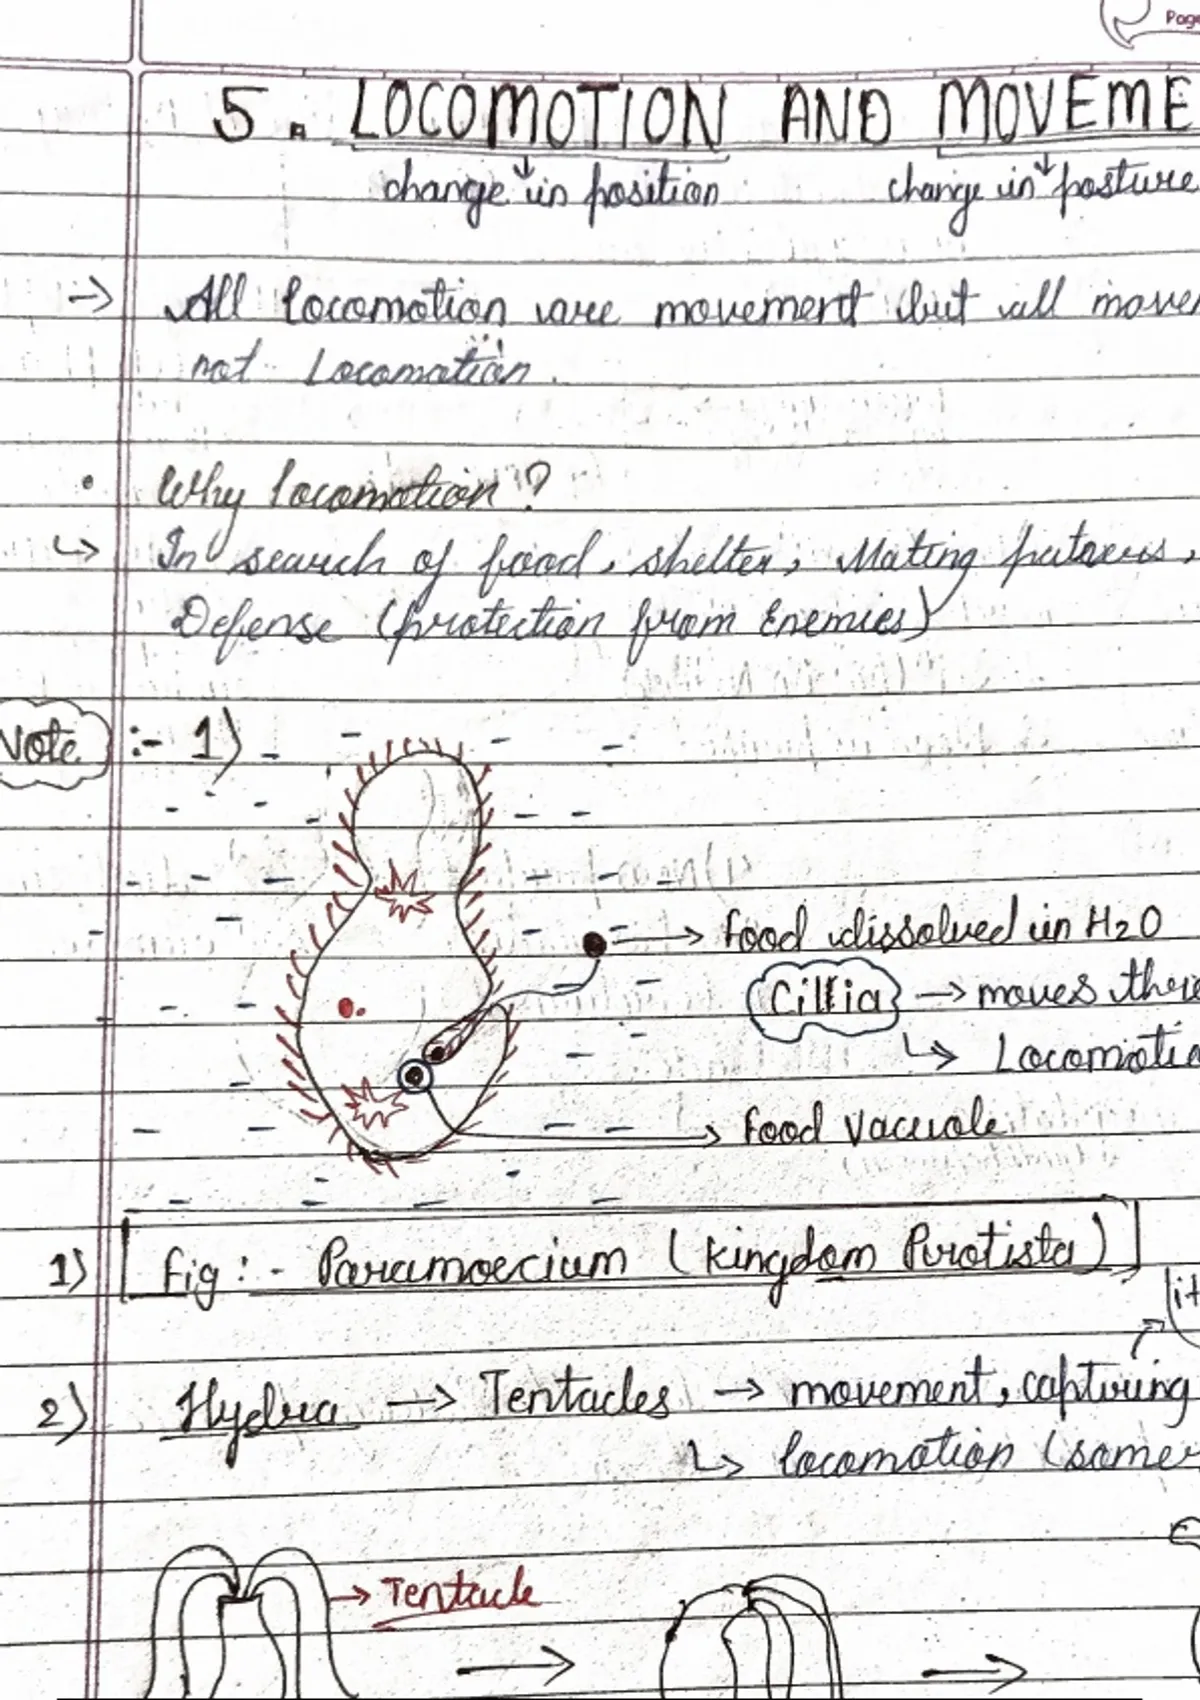 Page
5. LOCOMOTION AND MOVEME
change in position change in posture
→ All locomotion are movement but all movem
not Locomotion.
• Why locomotion?
↳ In search of food, shelter, Mating
Defense (protection from Enemies)
Note :- 1)
→ Food dissolved in H2O
Cillia → moves
↳ Locomotio
→ Food Vacuole
1) [Fig:- Paramoecium (Kingdom Protista)]
it
2) Hydra → Tentacles → movement, capturing
↳ locomotion (some
→ Tentacle